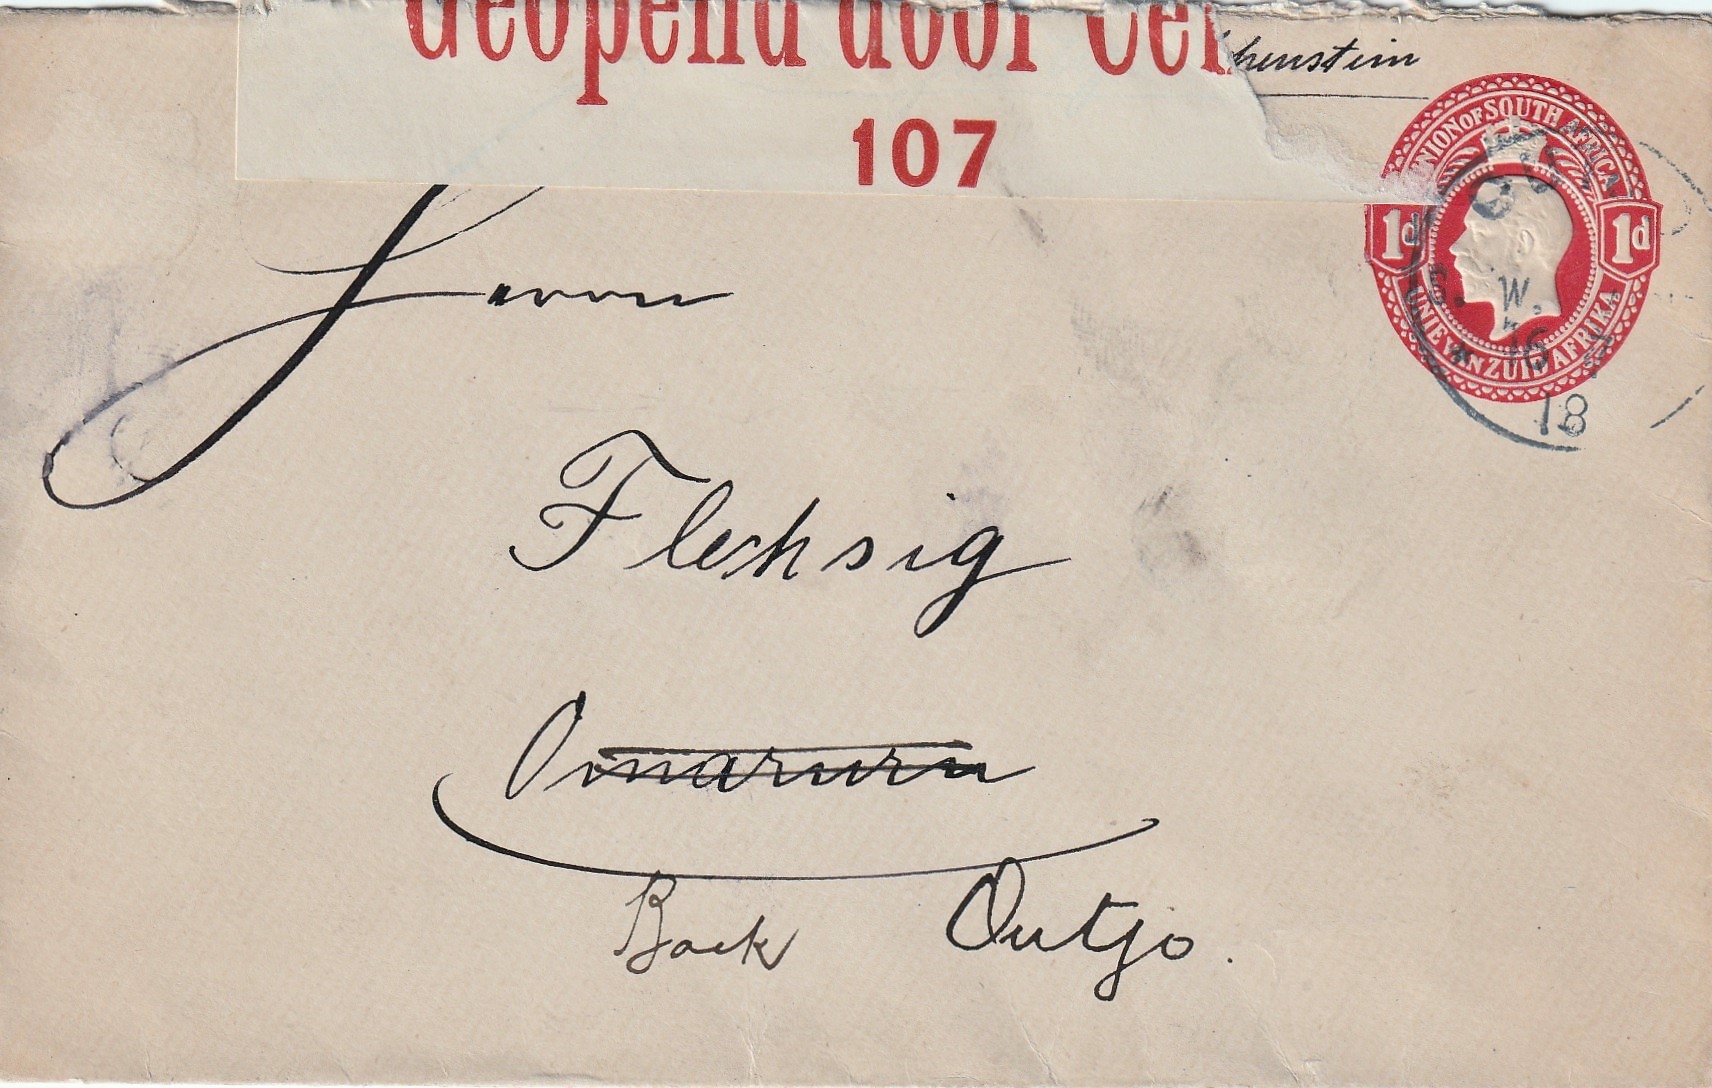 Geopend door Cen
107
chenstein
UNION OF SOUTH AFRICA
1d 1d
UNIE VAN ZUID AFRIKA
S. W.
16
18
Herrn
Flechsig
Omaruru
Back Outjo.